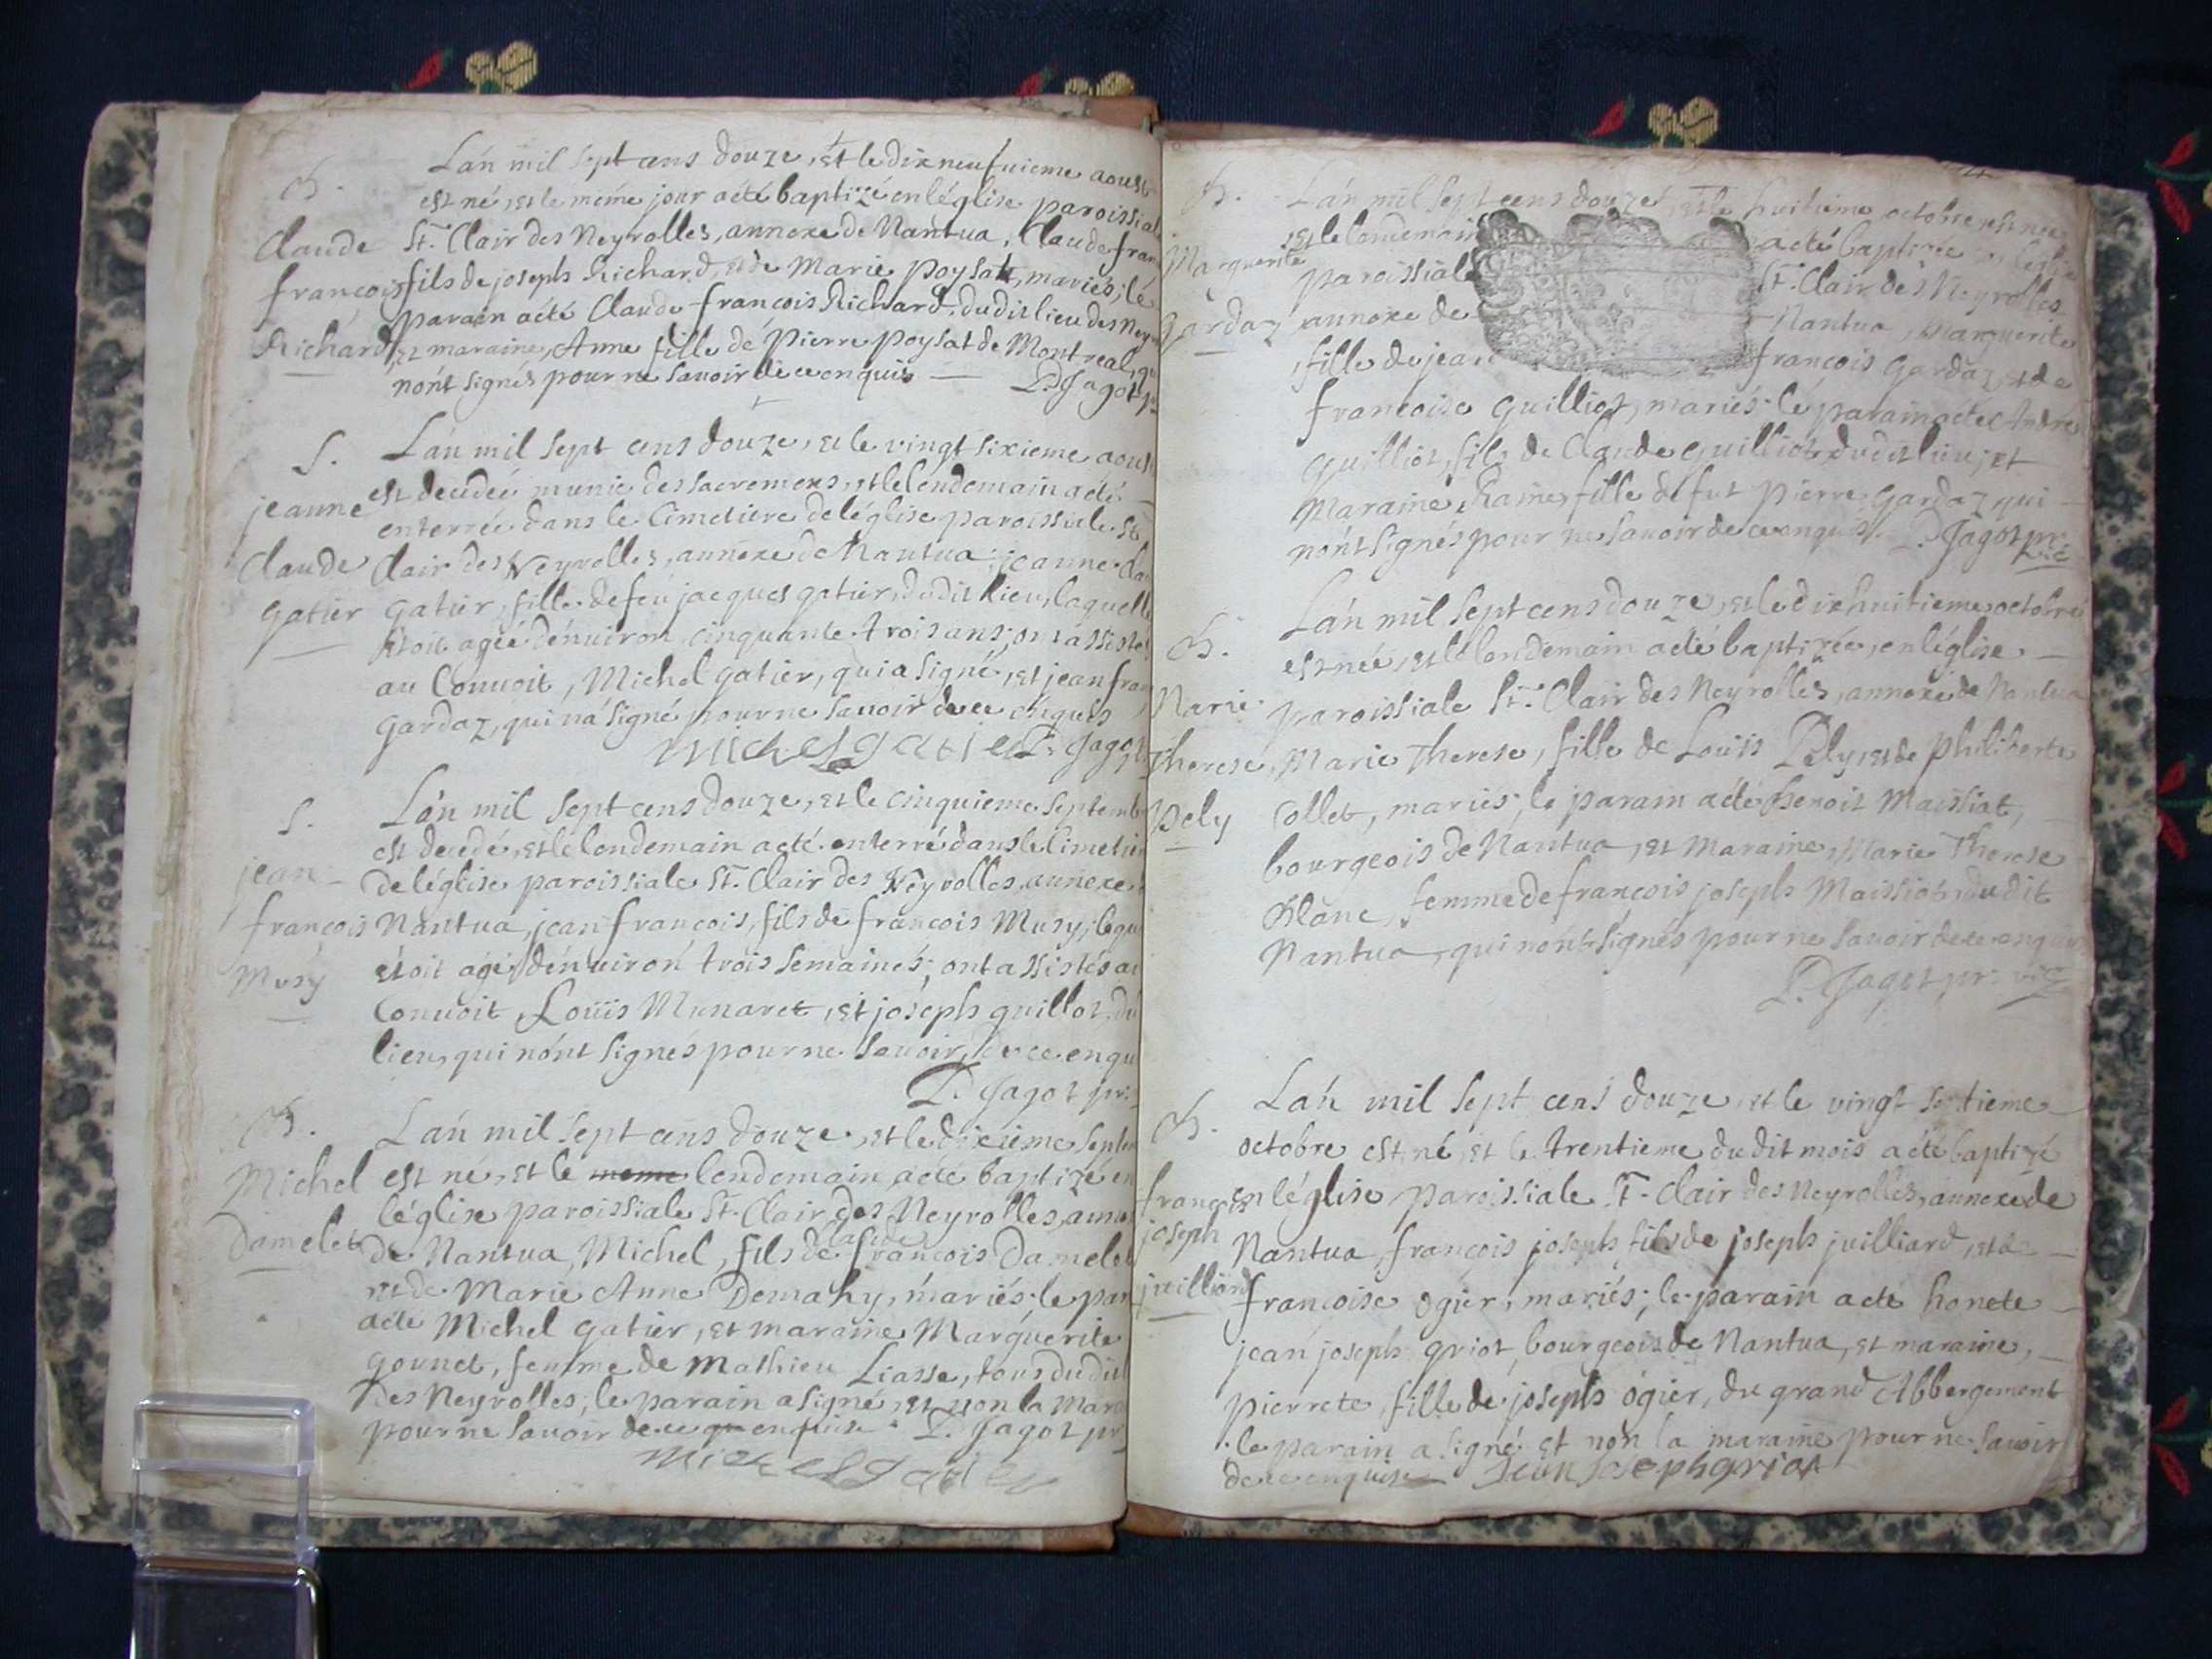 L'an mil sept cens douze, et le dix neufuieme aoust
B. est né, et le même jour a été baptizé en l'église paroissial
Claude St. Clair des Neyrolles, annexe de Nantua, Claude fran
francois fils de joseph Richard, et de Marie Poysat, mariés; le
parain a été Claude francois Richard, dudit lieu des Ney
Richard et maraine, Anne fille de Pierre Poysat de Montreal, qu
n'ont signés pour ne sauoir de ce enquis — P. Jagot
S. L'an mil sept cens douze, et le vingt sixieme aoust
jeanne est decedée munie des sacremens, et le lendemain a été
enterrée dans le Cimetiere de l'église paroissiale St.
Claude Clair des Neyrolles, annexe de Nantua, jeanne Cla
gatier gatier, fille de feu jacques gatier, dudit lieu, laquelle
étoit agée d'énuiron cinquante trois ans; ont assistés
au Conuoit, Michel gatier, qui a signé, et jean fran
gardaz, qui n'a signé pour ne sauoir de ce enquis
michel gatier P. Jagot
S. L'an mil sept cens douze, et le cinquieme septemb
est decedé, et le lendemain a été enterré dans le Cimetier
jean de l'église paroissiale St. Clair des Neyrolles, annexe
francois Nantua, jean francois, fils de francois Musy, lequ
Musy étoit agé d'énuiron trois semaines; ont assistés au
Conuoit, Louis Munaret, et joseph guillot, du
lieu, qui n'ont signés pour ne sauoir, de ce enqu
P. Jagot pr.
B. L'an mil sept cens douze, et le dixieme septem
Michel est né, et le meme lendemain a été baptizé en
l'église paroissiale St. Clair des Neyrolles, annex
claude
Damelet de Nantua, Michel, fils de francois Damelet
et de Marie Anne Demahy, mariés; le par
a été Michel gatier, et maraine Marguerite
gounet, femme de Mathieu Liasse, tous dudit
des Neyrolles; le parain a signé, et non la mara
pour ne sauoir de ce enquise P. Jagot pr
michel gatier
B. L'an mil sept cens douze, et le huitieme octobre est née
et le lendemain a été baptizée en l'église
Marguerite paroissiale St. Clair des Neyrolles
gardaz annexe de Nantua, Marguerite
fille de jean francois gardaz, et de
francoise guilliot, mariés; le parain a été André
guilliot, fils de Claude guilliot, dudit lieu; et
Maraine, fille de fut Pierre gardaz, qui
n'ont signés pour ne sauoir de ce enquis. P. Jagot pr. vic
L'an mil sept cens douze, et le dixhuitieme octobre
B. est née, et le lendemain a été baptizée, en l'église
Marie paroissiale St. Clair des Neyrolles, annexe de Nantua
Therese Marie Therese, fille de Louis Pely, et de philiberte
Pely Collet, mariés; le parain a été Benoit Maissiat,
bourgeois de Nantua, et Maraine, Marie Therese
Blanc, femme de francois joseph Maissiat, dudit
Nantua, qui n'ont signés pour ne sauoir de ce enquis
P. Jagot pr. vic
L'an mil sept cens douze, et le vingt septieme
B. octobre est né, et le trentieme dudit mois a été baptizé
francois en l'église paroissiale St. Clair des Neyrolles, annexe de
joseph Nantua, francois joseph, fils de joseph juilliard, et de
juilliard francoise ogier, mariés; le parain a été honete
jean joseph griot, bourgeois de Nantua, et maraine,
pierrete, fille de joseph ogier, du grand Abbergement
le parain a signé et non la maraine pour ne sauoir
de ce enquise jean joseph griot